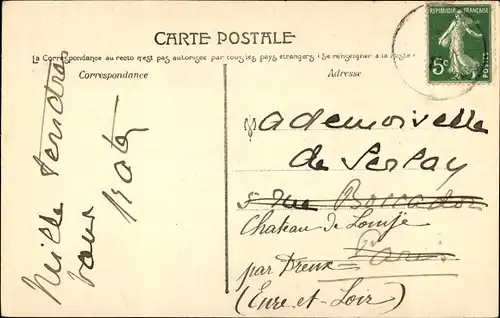 CARTE POSTALE
La Correspondance au recto n'est pas autorisée par tous les pays étrangers (Se renseigner à la Poste)
Correspondance
Adresse
5c
POSTES
Mille tendres
pour
Mademoiselle
de
5 rue Boccador
Paris
Chateau de
par Dreux =
(Eure-et-Loir)